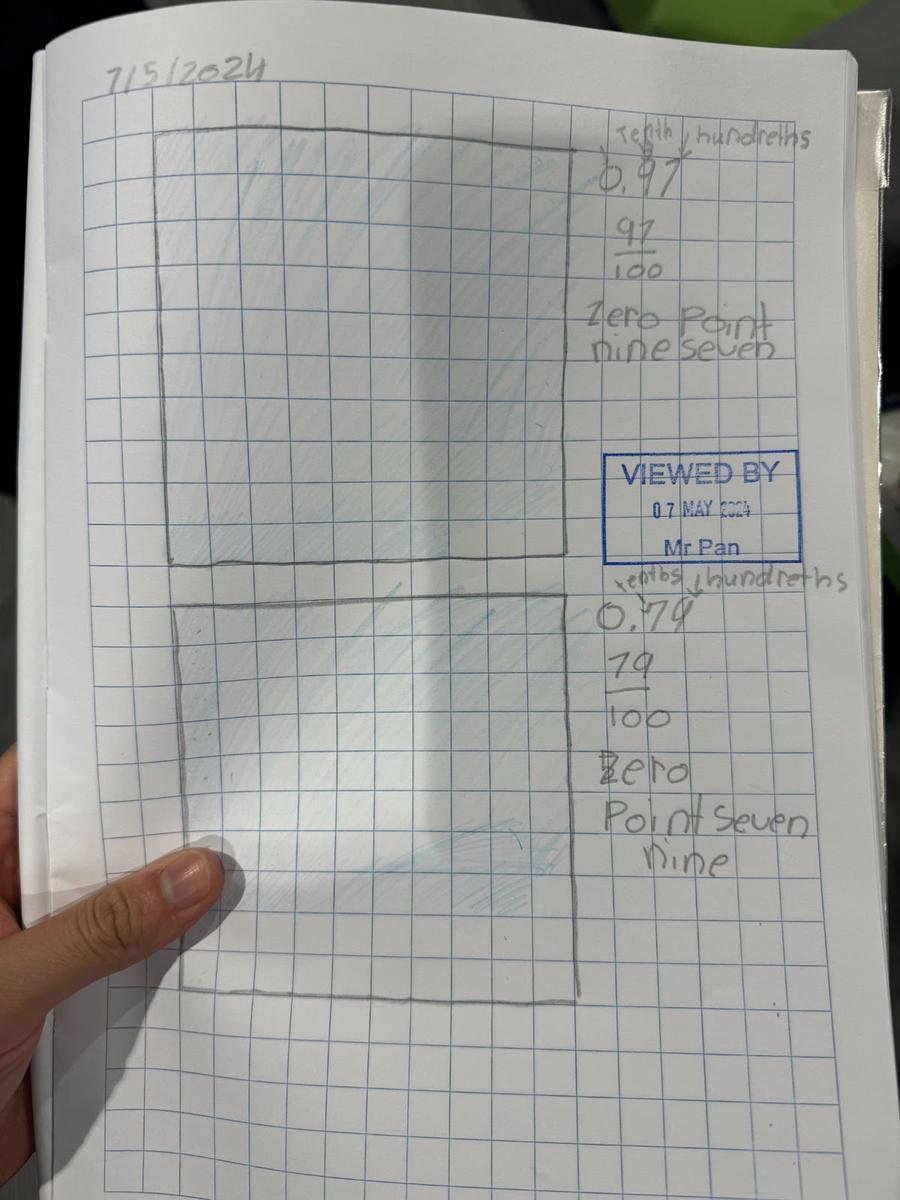 7/5/2024
Tenth hundreths
0.97
97
100
Zero Point
nine seven
VIEWED BY
07 MAY 2024
Mr Pan
tenths hundreths
0.79
79
100
Zero
Point seven
nine